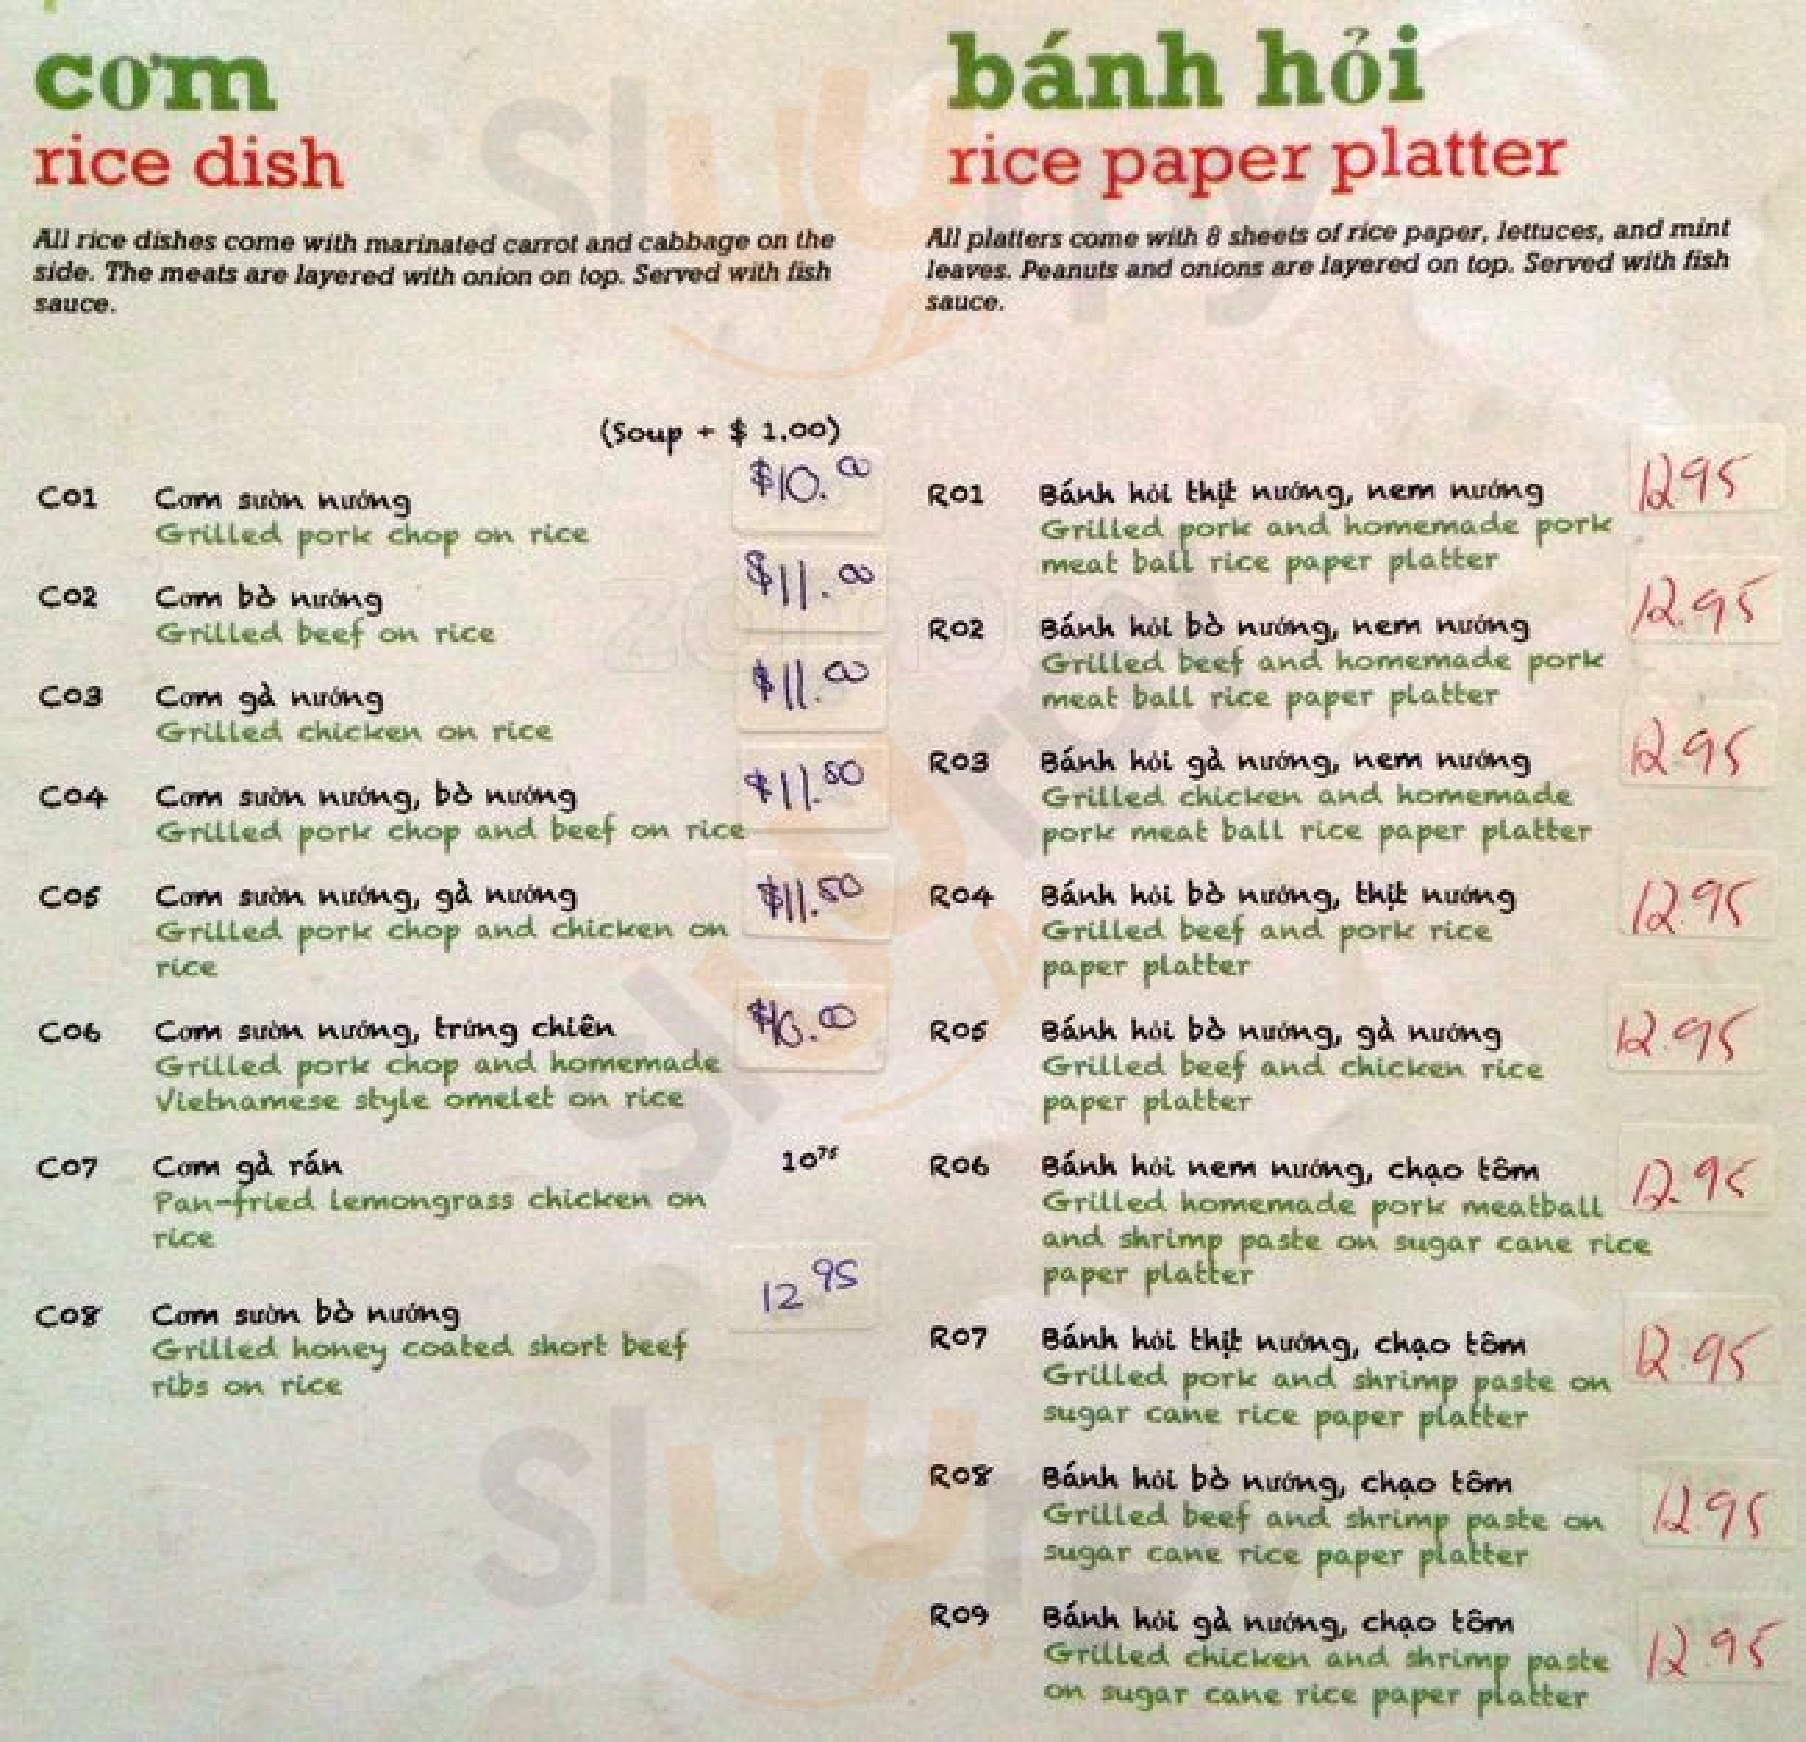 cơm
rice dish
All rice dishes come with marinated carrot and cabbage on the
side. The meats are layered with onion on top. Served with fish
sauce.
(Soup + $ 1.00)
C01 Cơm sườn nướng $10.00
Grilled pork chop on rice
C02 Cơm bò nướng $11.00
Grilled beef on rice
C03 Cơm gà nướng $11.00
Grilled chicken on rice
C04 Cơm sườn nướng, bò nướng $11.50
Grilled pork chop and beef on rice
C05 Cơm sườn nướng, gà nướng $11.50
Grilled pork chop and chicken on
rice
C06 Cơm sườn nướng, trứng chiên
Grilled pork chop and homemade
Vietnamese style omelet on rice
C07 Cơm gà rán 1075
Pan-fried lemongrass chicken on
rice
C08 Cơm sườn bò nướng 12 95
Grilled honey coated short beef
ribs on rice
bánh hỏi
rice paper platter
All platters come with 8 sheets of rice paper, lettuces, and mint
leaves. Peanuts and onions are layered on top. Served with fish
sauce.
R01 Bánh hỏi thịt nướng, nem nướng 1295
Grilled pork and homemade pork
meat ball rice paper platter
R02 Bánh hỏi bò nướng, nem nướng 12.95
Grilled beef and homemade pork
meat ball rice paper platter
R03 Bánh hỏi gà nướng, nem nướng 12.95
Grilled chicken and homemade
pork meat ball rice paper platter
R04 Bánh hỏi bò nướng, thịt nướng 12.95
Grilled beef and pork rice
paper platter
R05 Bánh hỏi bò nướng, gà nướng 12.95
Grilled beef and chicken rice
paper platter
R06 Bánh hỏi nem nướng, chạo tôm 12.95
Grilled homemade pork meatball
and shrimp paste on sugar cane rice
paper platter
R07 Bánh hỏi thịt nướng, chạo tôm 12.95
Grilled pork and shrimp paste on
sugar cane rice paper platter
R08 Bánh hỏi bò nướng, chạo tôm 12.95
Grilled beef and shrimp paste on
sugar cane rice paper platter
R09 Bánh hỏi gà nướng, chạo tôm 12.95
Grilled chicken and shrimp paste
on sugar cane rice paper platter
Slurrpy
Slurrpy
Slurrpy